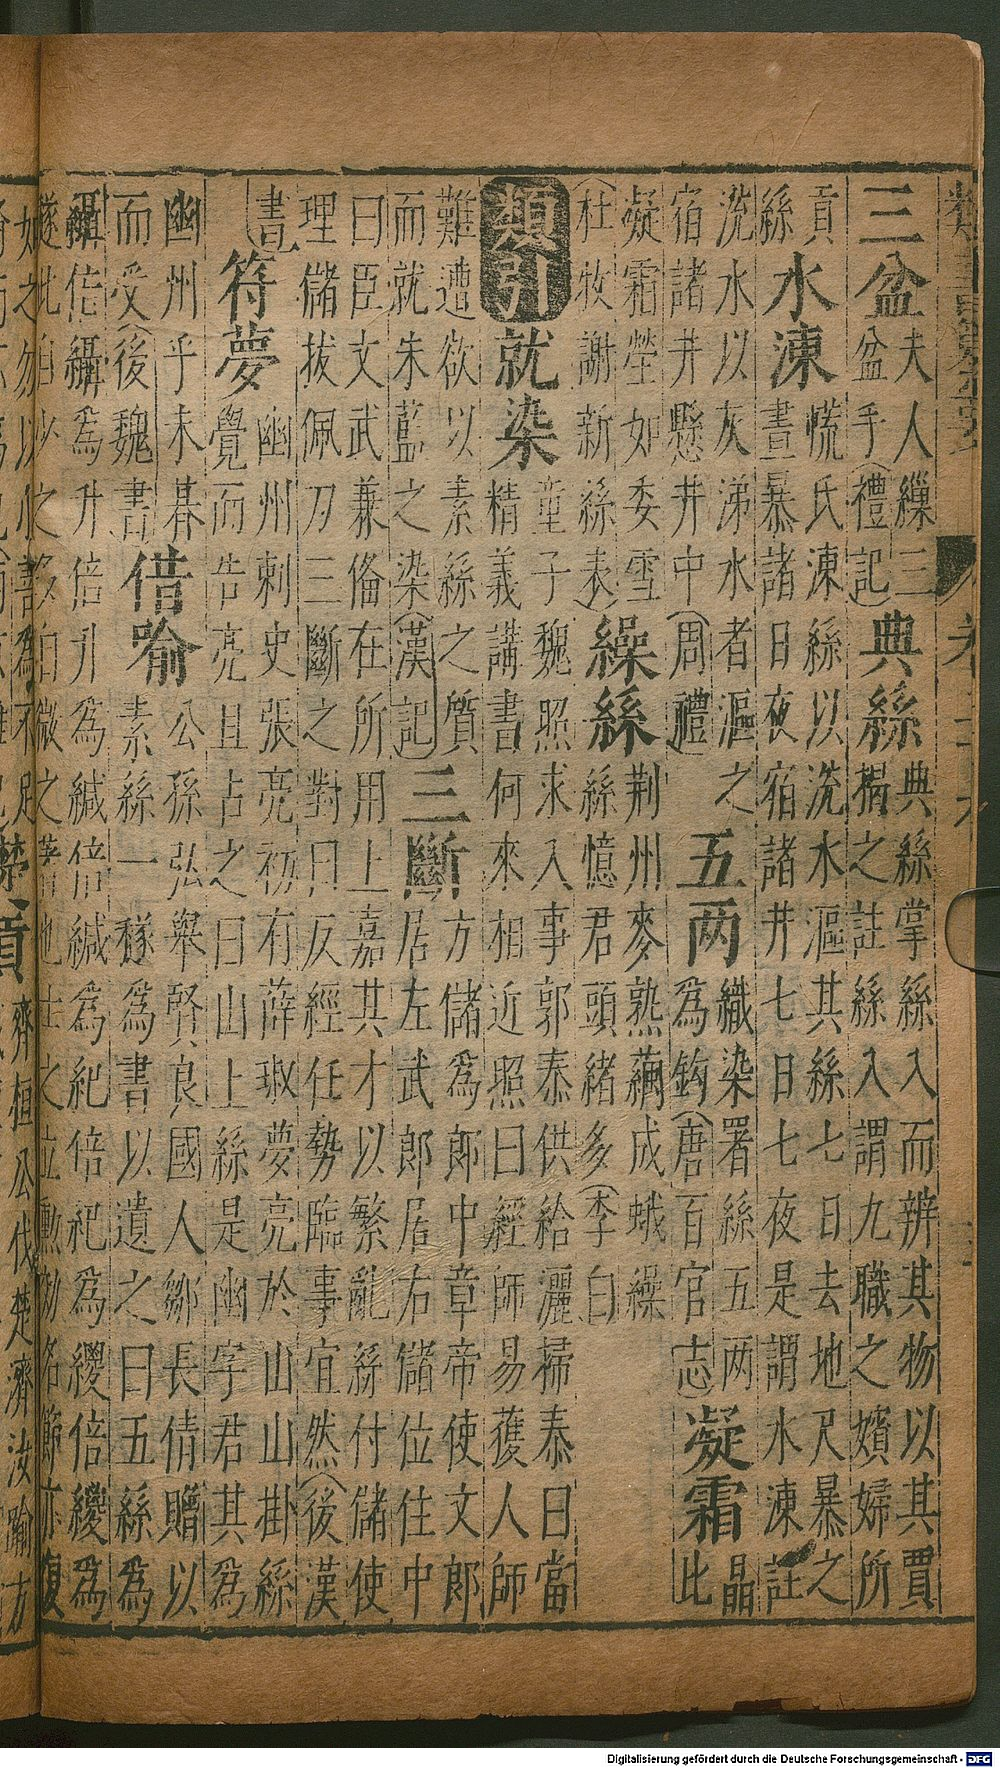 三盆
夫人繅三
盆手(禮記)
典絲
典絲掌絲入而辨其物以其賈
揭之註絲入謂九職之嬪婦所
貢
絲
水湅
㡆氏湅絲以涗水漚其絲七日去地尺暴之
晝暴諸日夜宿諸井七日七夜是謂水湅註
涗水以灰涕水者漚之
宿諸井懸井中(周禮)
五两
織染署絲五两
為鈎(唐百官志
凝霜
晶
比
凝霜瑩如委雪
(杜牧謝新絲表)
繰絲
荆州麥熟繭成蛾繰
絲憶君頭緒多(李白
類引
就染
童子魏照求入事郭泰供給灑掃泰曰當
精義講書何來相近照曰經師易獲人師
難遭欲以素絲之質
而就朱藍之染(漢記)
三斷
方儲為郎中章帝使文郎
居左武郎居右儲位住中
曰臣文武兼俻在所用上嘉其才以繁亂絲付儲使
理儲拔佩刀三斷之對曰反經任勢臨事宜然(後漢
書)
符夢
幽州刺史張亮初有薛琡夢亮於山山掛絲
覺而告亮且占之曰山上絲是幽字君其為
幽州乎未朞
而受(後魏書
倍喻
公孫弘舉賢良國人鄒長倩贈以
素絲一襚為書以遺之曰五絲為
䌰倍䌰為升倍升為緎倍緎為紀倍紀為緵倍緵為
襚此自少之多自微之著也士之立勲効名節亦復
如之勿以小善為不足
齊桓公伐楚濟汝踰方
Digitalisierung gefördert durch die Deutsche Forschungsgemeinschaft - DFG